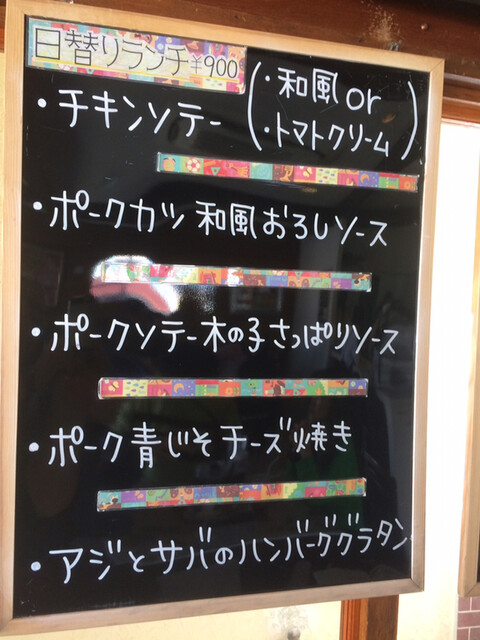 日替りランチ ¥900
・チキンソテー (・和風 or
・トマトクリーム)
・ポークカツ 和風おろしソース
・ポークソテー木の子さっぱりソース
・ポーク青じそチーズ焼き
・アジとサバのハンバーググラタン